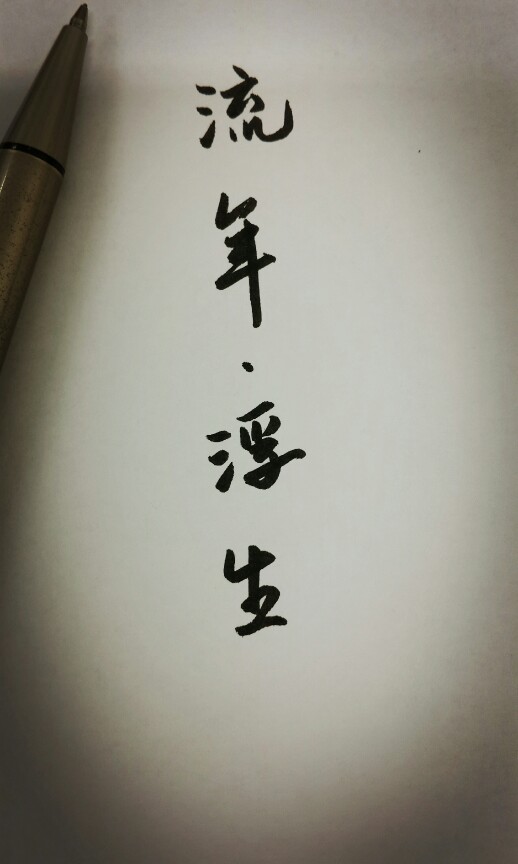 流年·浮生